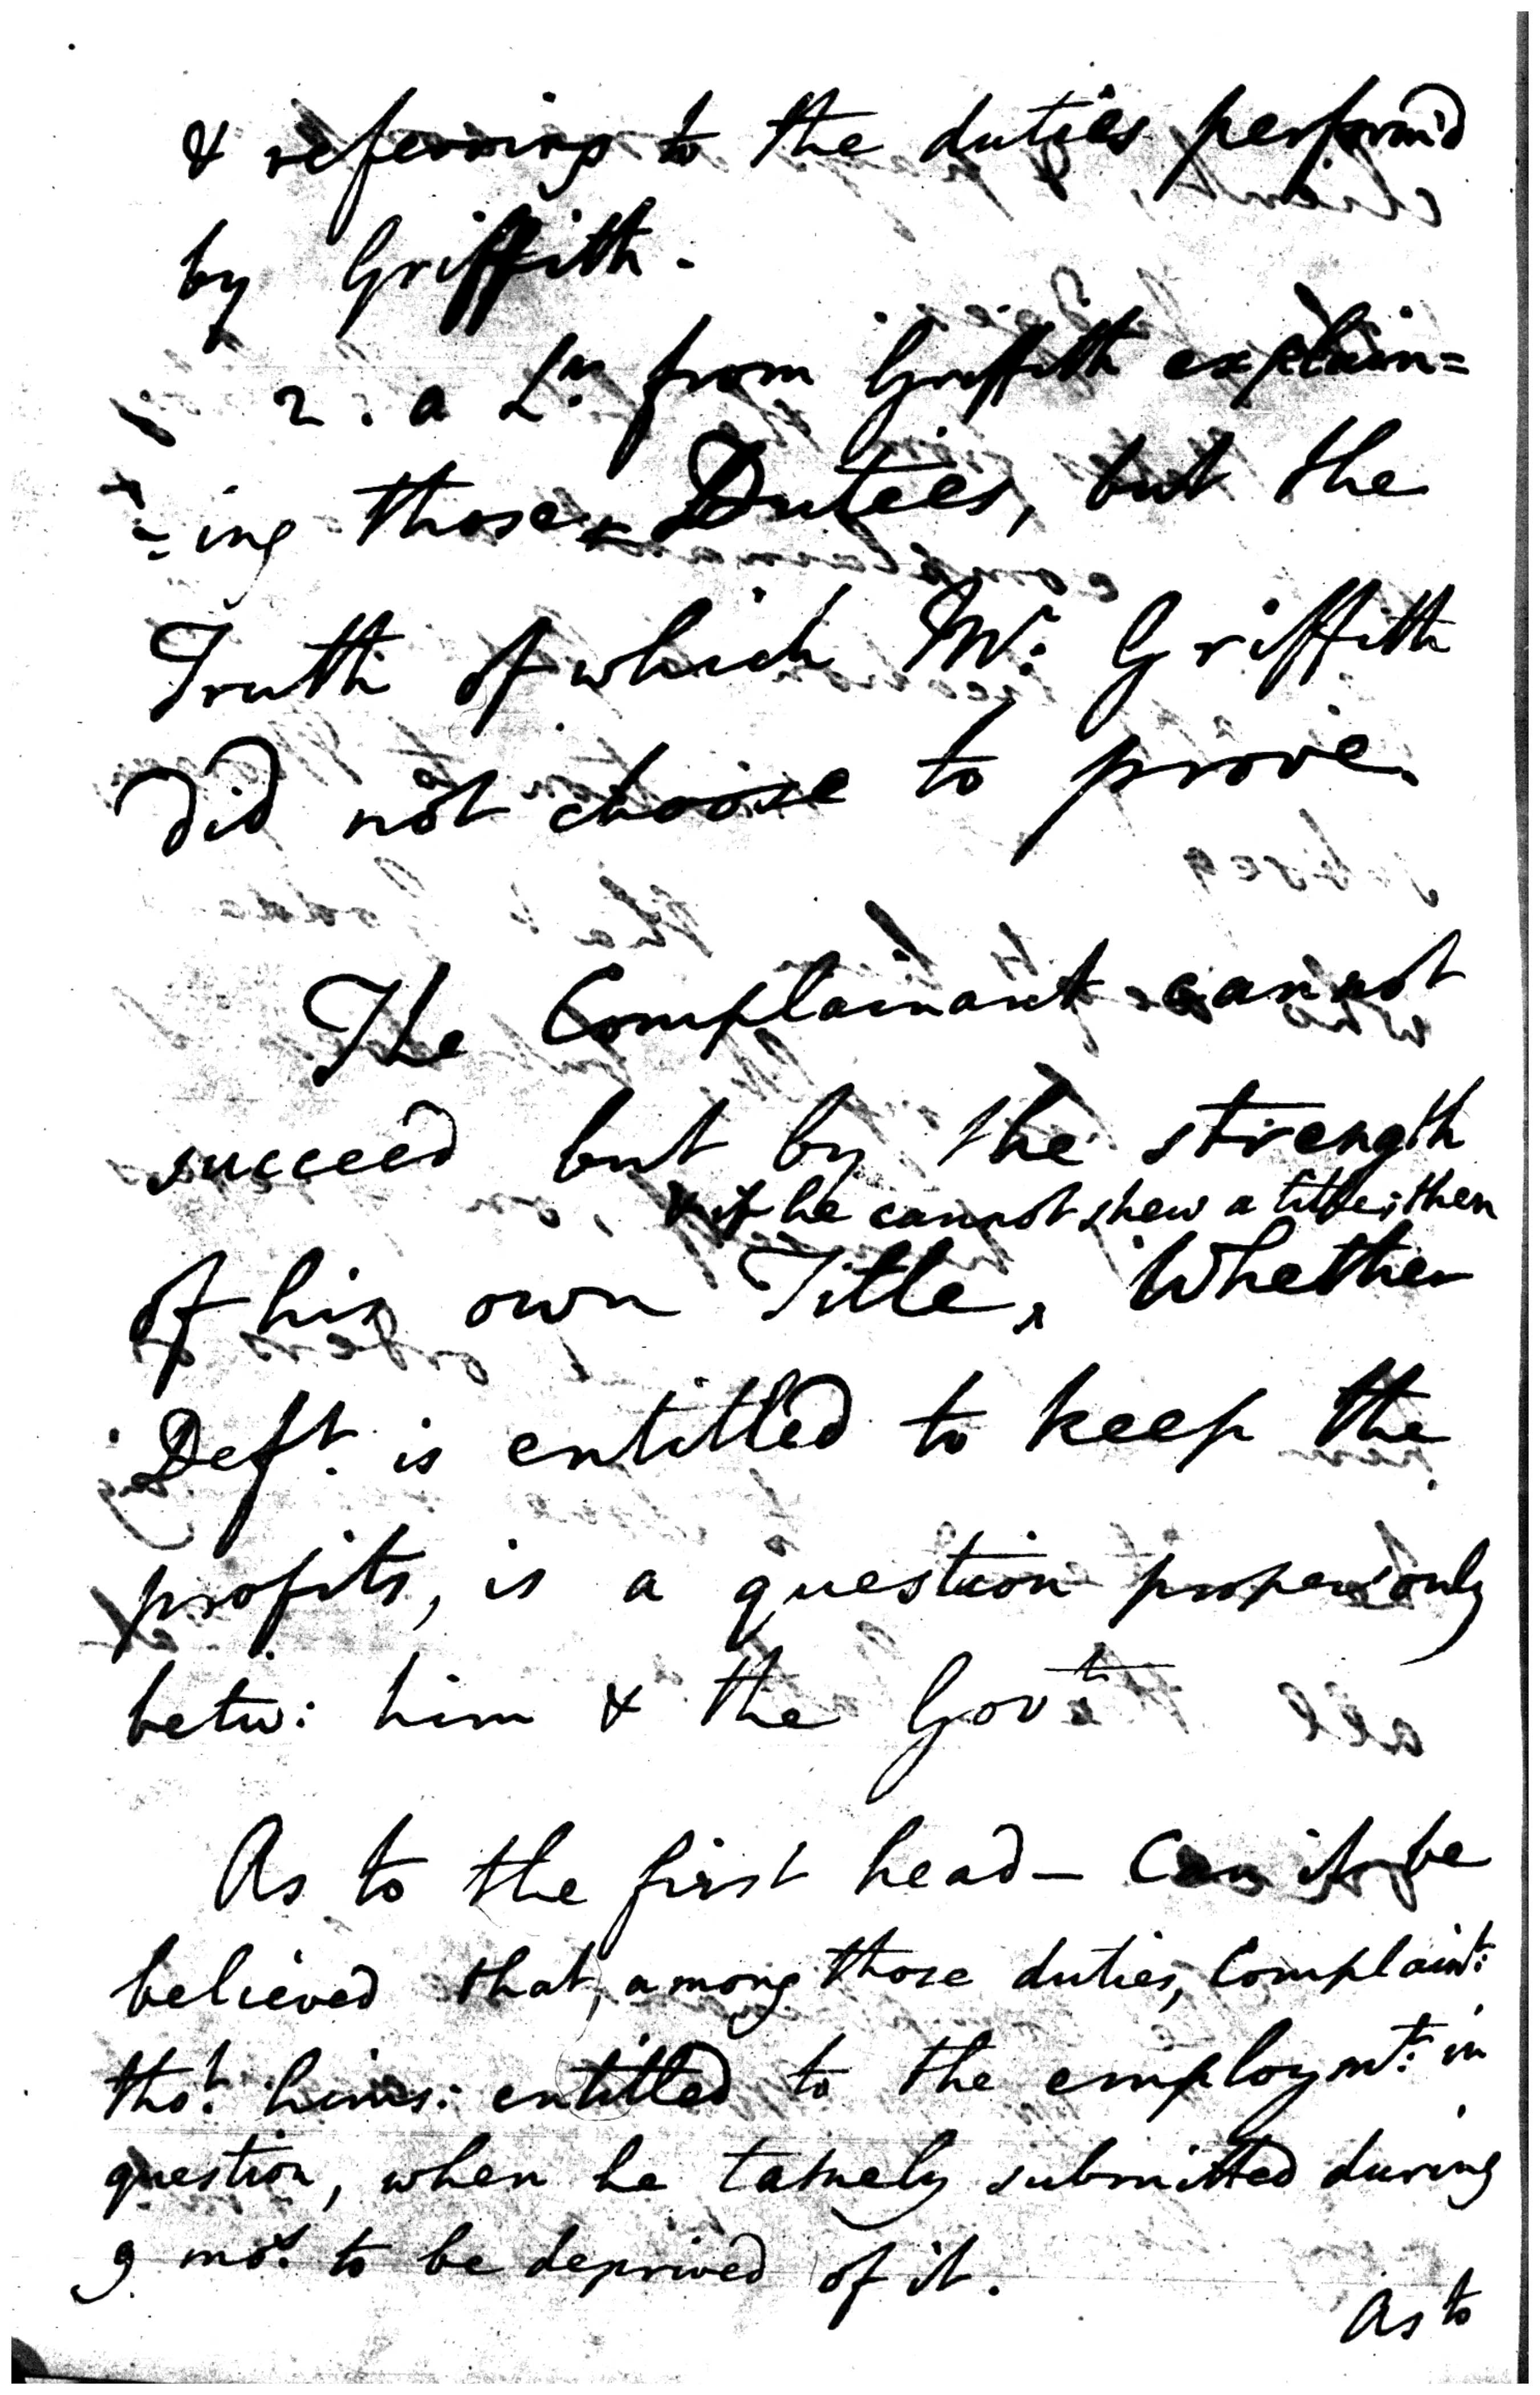 & referring to the duties perform'd
by Griffith.
2. a Lr. from Griffith explain=
=ing those Duties, but the
Truth of which Mr. Griffith
did not choose to prove.
The Complainant cannot
succeed but by the strength
& if he cannot shew a title, then
of his own Title, Whether
Deft. is entitled to keep the
profits, is a question proper only
betw: him & the Govt
As to the first head— Can it be
believed that, among those duties, Complaint:
thot. hims: entitled to the employmt: in
question, when he tamely submitted during
9 mos. to be deprived of it.
As to